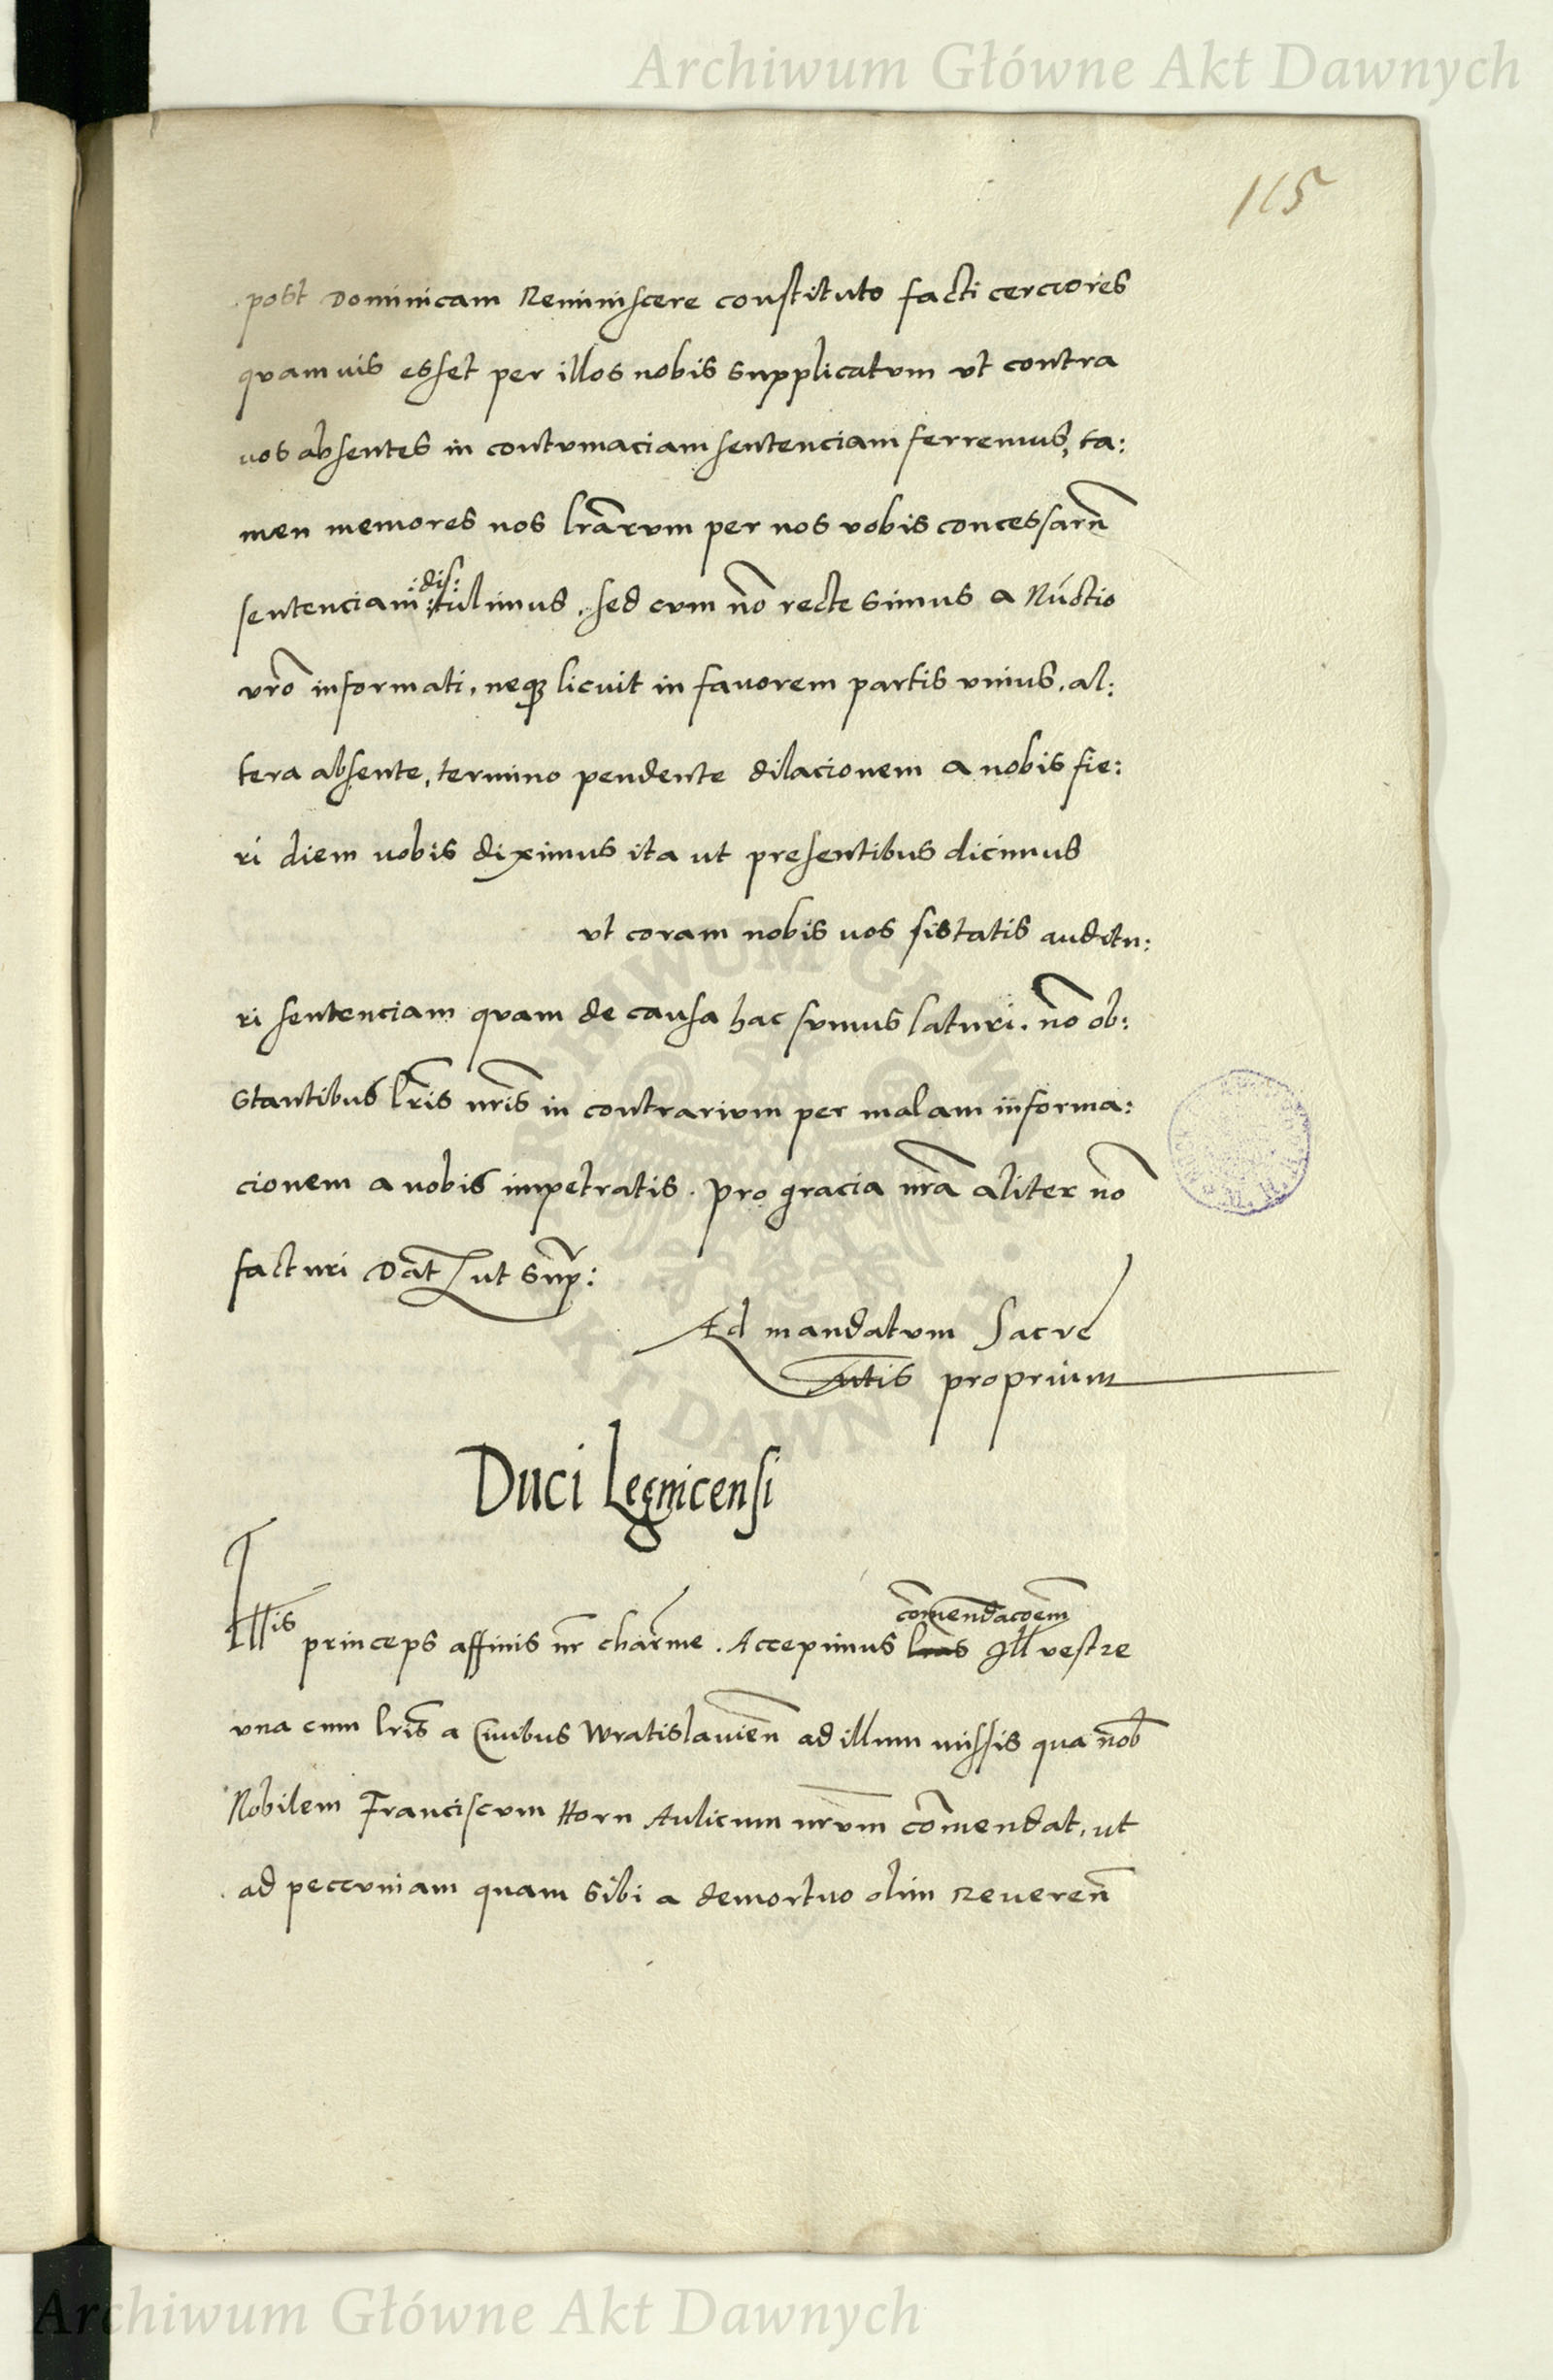 Archiwum Główne Akt Dawnych
115
post Dominicam Reminiscere constituto facti cerciores
quamuis esset per illos nobis supplicatum vt contra
uos absentes in contumaciam sentenciam ferremus, ta:
men memores nos lrarum per nos vobis concessarn
:dis:
sentenciam :tulimus. sed cum no recte simus a Nuctio
vro informati, neq3 licuit in fauorem partis vnius, al:
tera absente, termino pendente dilacionem a nobis fie:
ri diem uobis diximus ita ut presentibus dicimus
vt coram nobis uos sistatis auditu:
ri sentenciam quam de causa hac sumus laturi. no ob:
stantibus lris nris in contrarium per malam informa:
cionem a nobis impetratis. pro gracia nra aliter no
facturi Dat ut sup:
Ad mandatum Sacre
Mtis proprium
Duci Legnicensi
comendacoem
Illis princeps affinis nr charme. Accepimus lras Ill vestre
vna cum lris a Ciuibus Wratislauien ad illum missis qua nob
Nobilem Franciscum Horn Aulicum nrum comendat, ut
ad peccuniam quam sibi a demortuo olim Reueren
ARCHIWUM GŁÓWNE
AKT DAWNYCH
Archiwum Główne Akt Dawnych